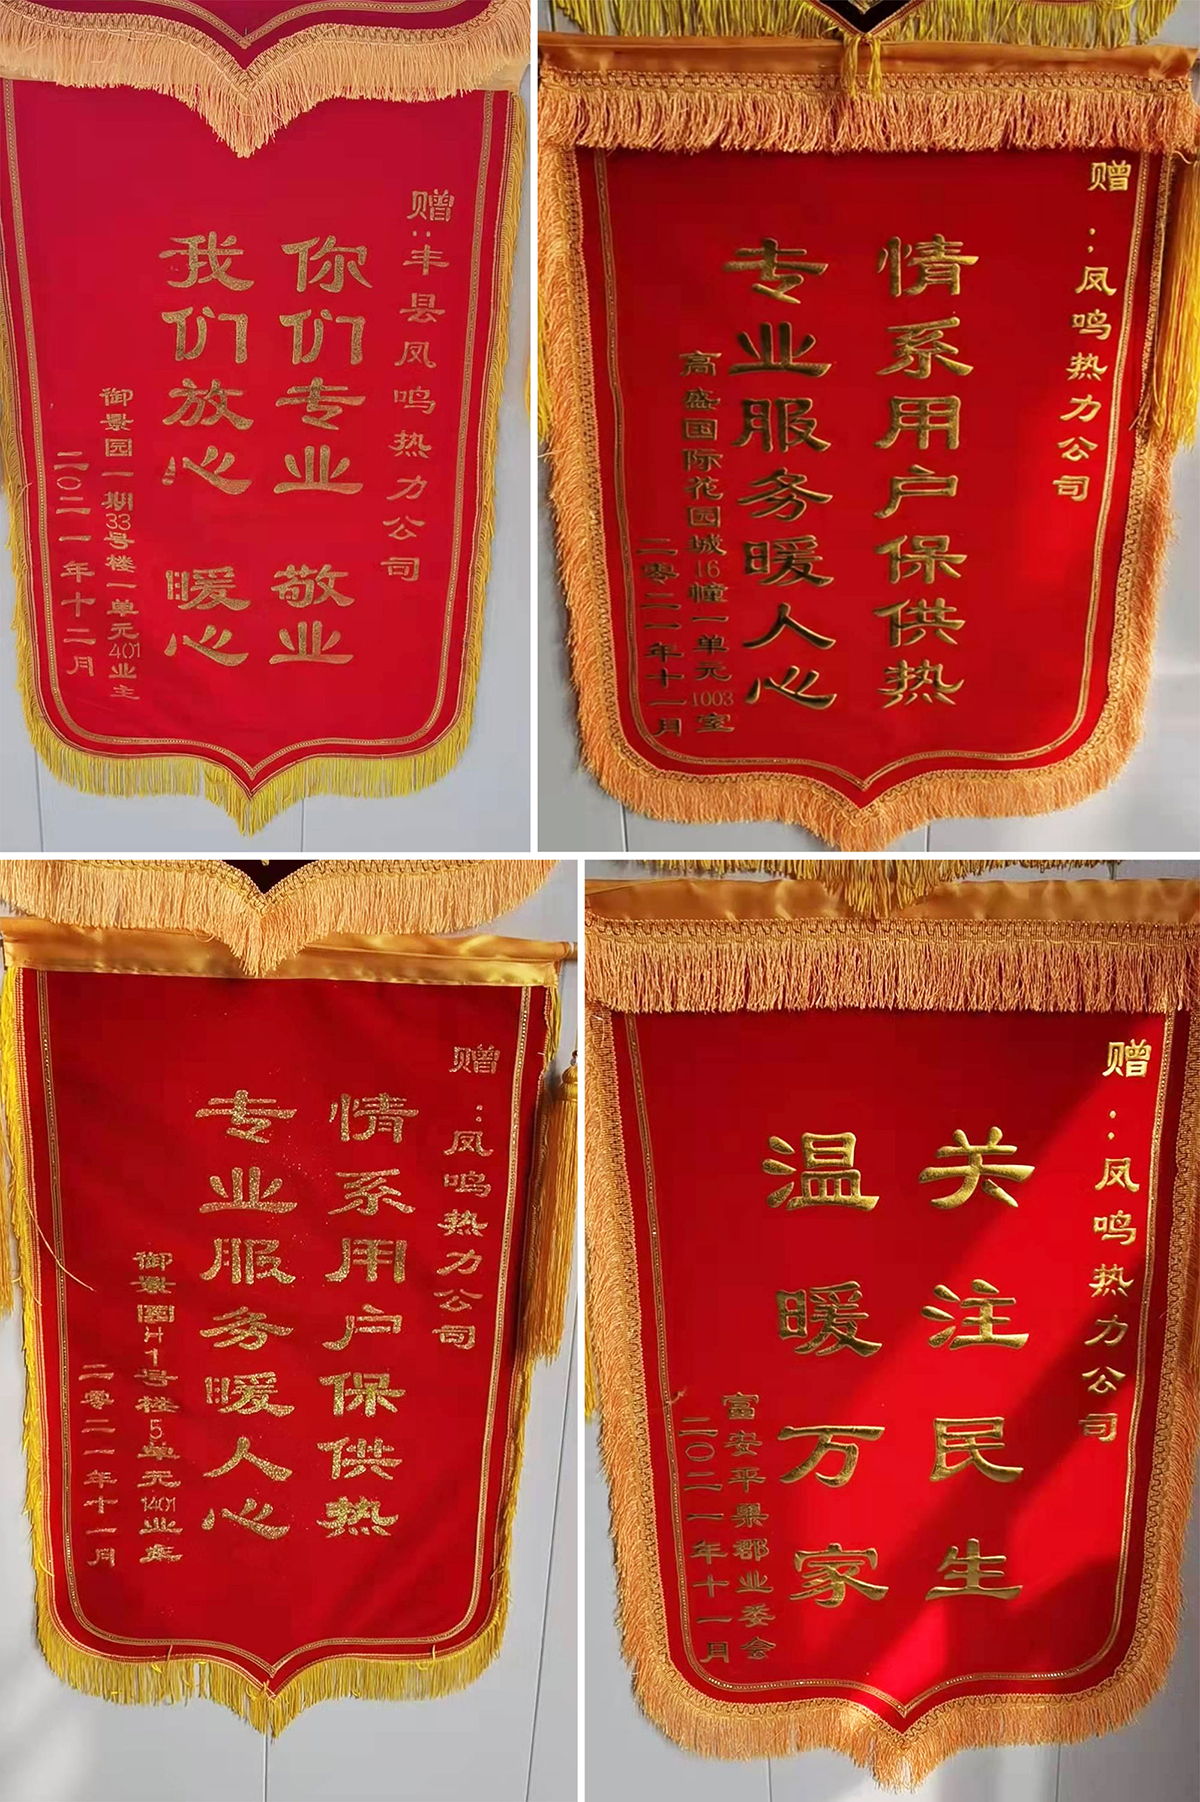 赠:丰县凤鸣热力公司
你们专业 敬业
我们放心 暖心
御景园一期33号楼一单元401业主
二〇二一年十二月
赠:凤鸣热力公司
情系用户保供热
专业服务暖人心
高盛国际花园城16幢一单元1003室
二零二一年十一月
赠:凤鸣热力公司
情系用户保供热
专业服务暖人心
御景園H1号楼5单元1401业主
二零二一年十一月
赠:凤鸣热力公司
关注民生
温暖万家
富安平果郡业委会
二〇二一年十一月